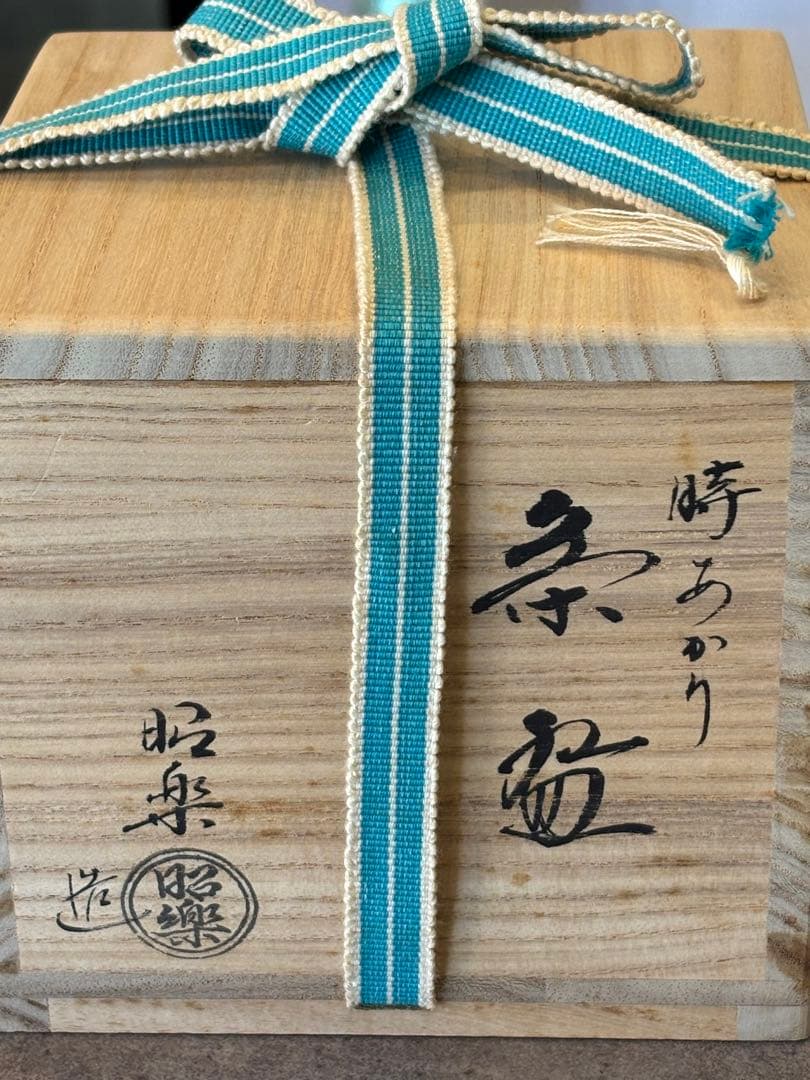 時あかり
茶盌
昭楽
造
昭樂